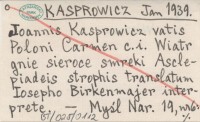 KASPROWICZ Jan 1939.
Joannis Kasprowicz vatis
Poloni Carmen c.i. Wiatr
gnie sieroce smreki Ascle-
piadeis strophis translatum
Iosepho Birkenmajer inter-
prete. – Myśl Nar. 19, nr 6